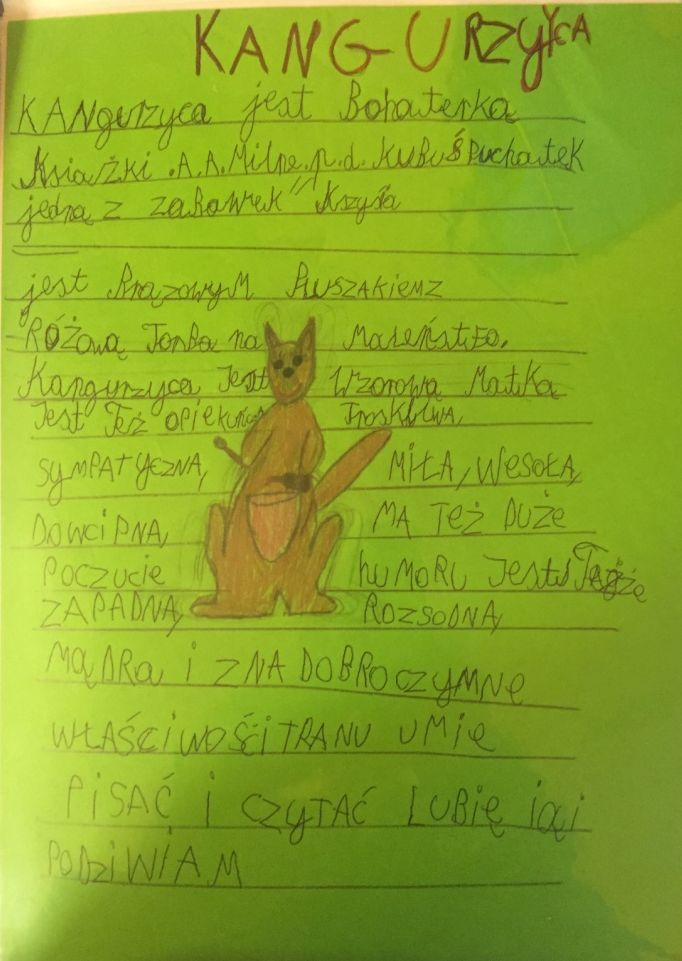 KANGURZYCA
KANgurzyca jest Bohaterką
Książki .A.A.Milne.p.d. KUBUŚ Puchatek
jedną z zabawek" Krzysia
jest Brązowym PluszakiemZ
RÓŻOWĄ Torbą na Maleństwo.
Kangurzyca Jest Wzorową Matką
Jest Też opiekuńcza Troskliwa,
SYMPATYCZNA, MIŁA, WESOŁA,
DOWCIPNA, MA TEŻ DUŻE
POCZUCIE HUMORU Jest Też
ZAPADNA, ROZSODNA,
MĄDRA i ZNA DOBROCZYMNE
WŁAŚCIWOŚCi TRANU UMIE
PISAĆ i CZYTAĆ LUBIĘ ią i
PODZIWIAM